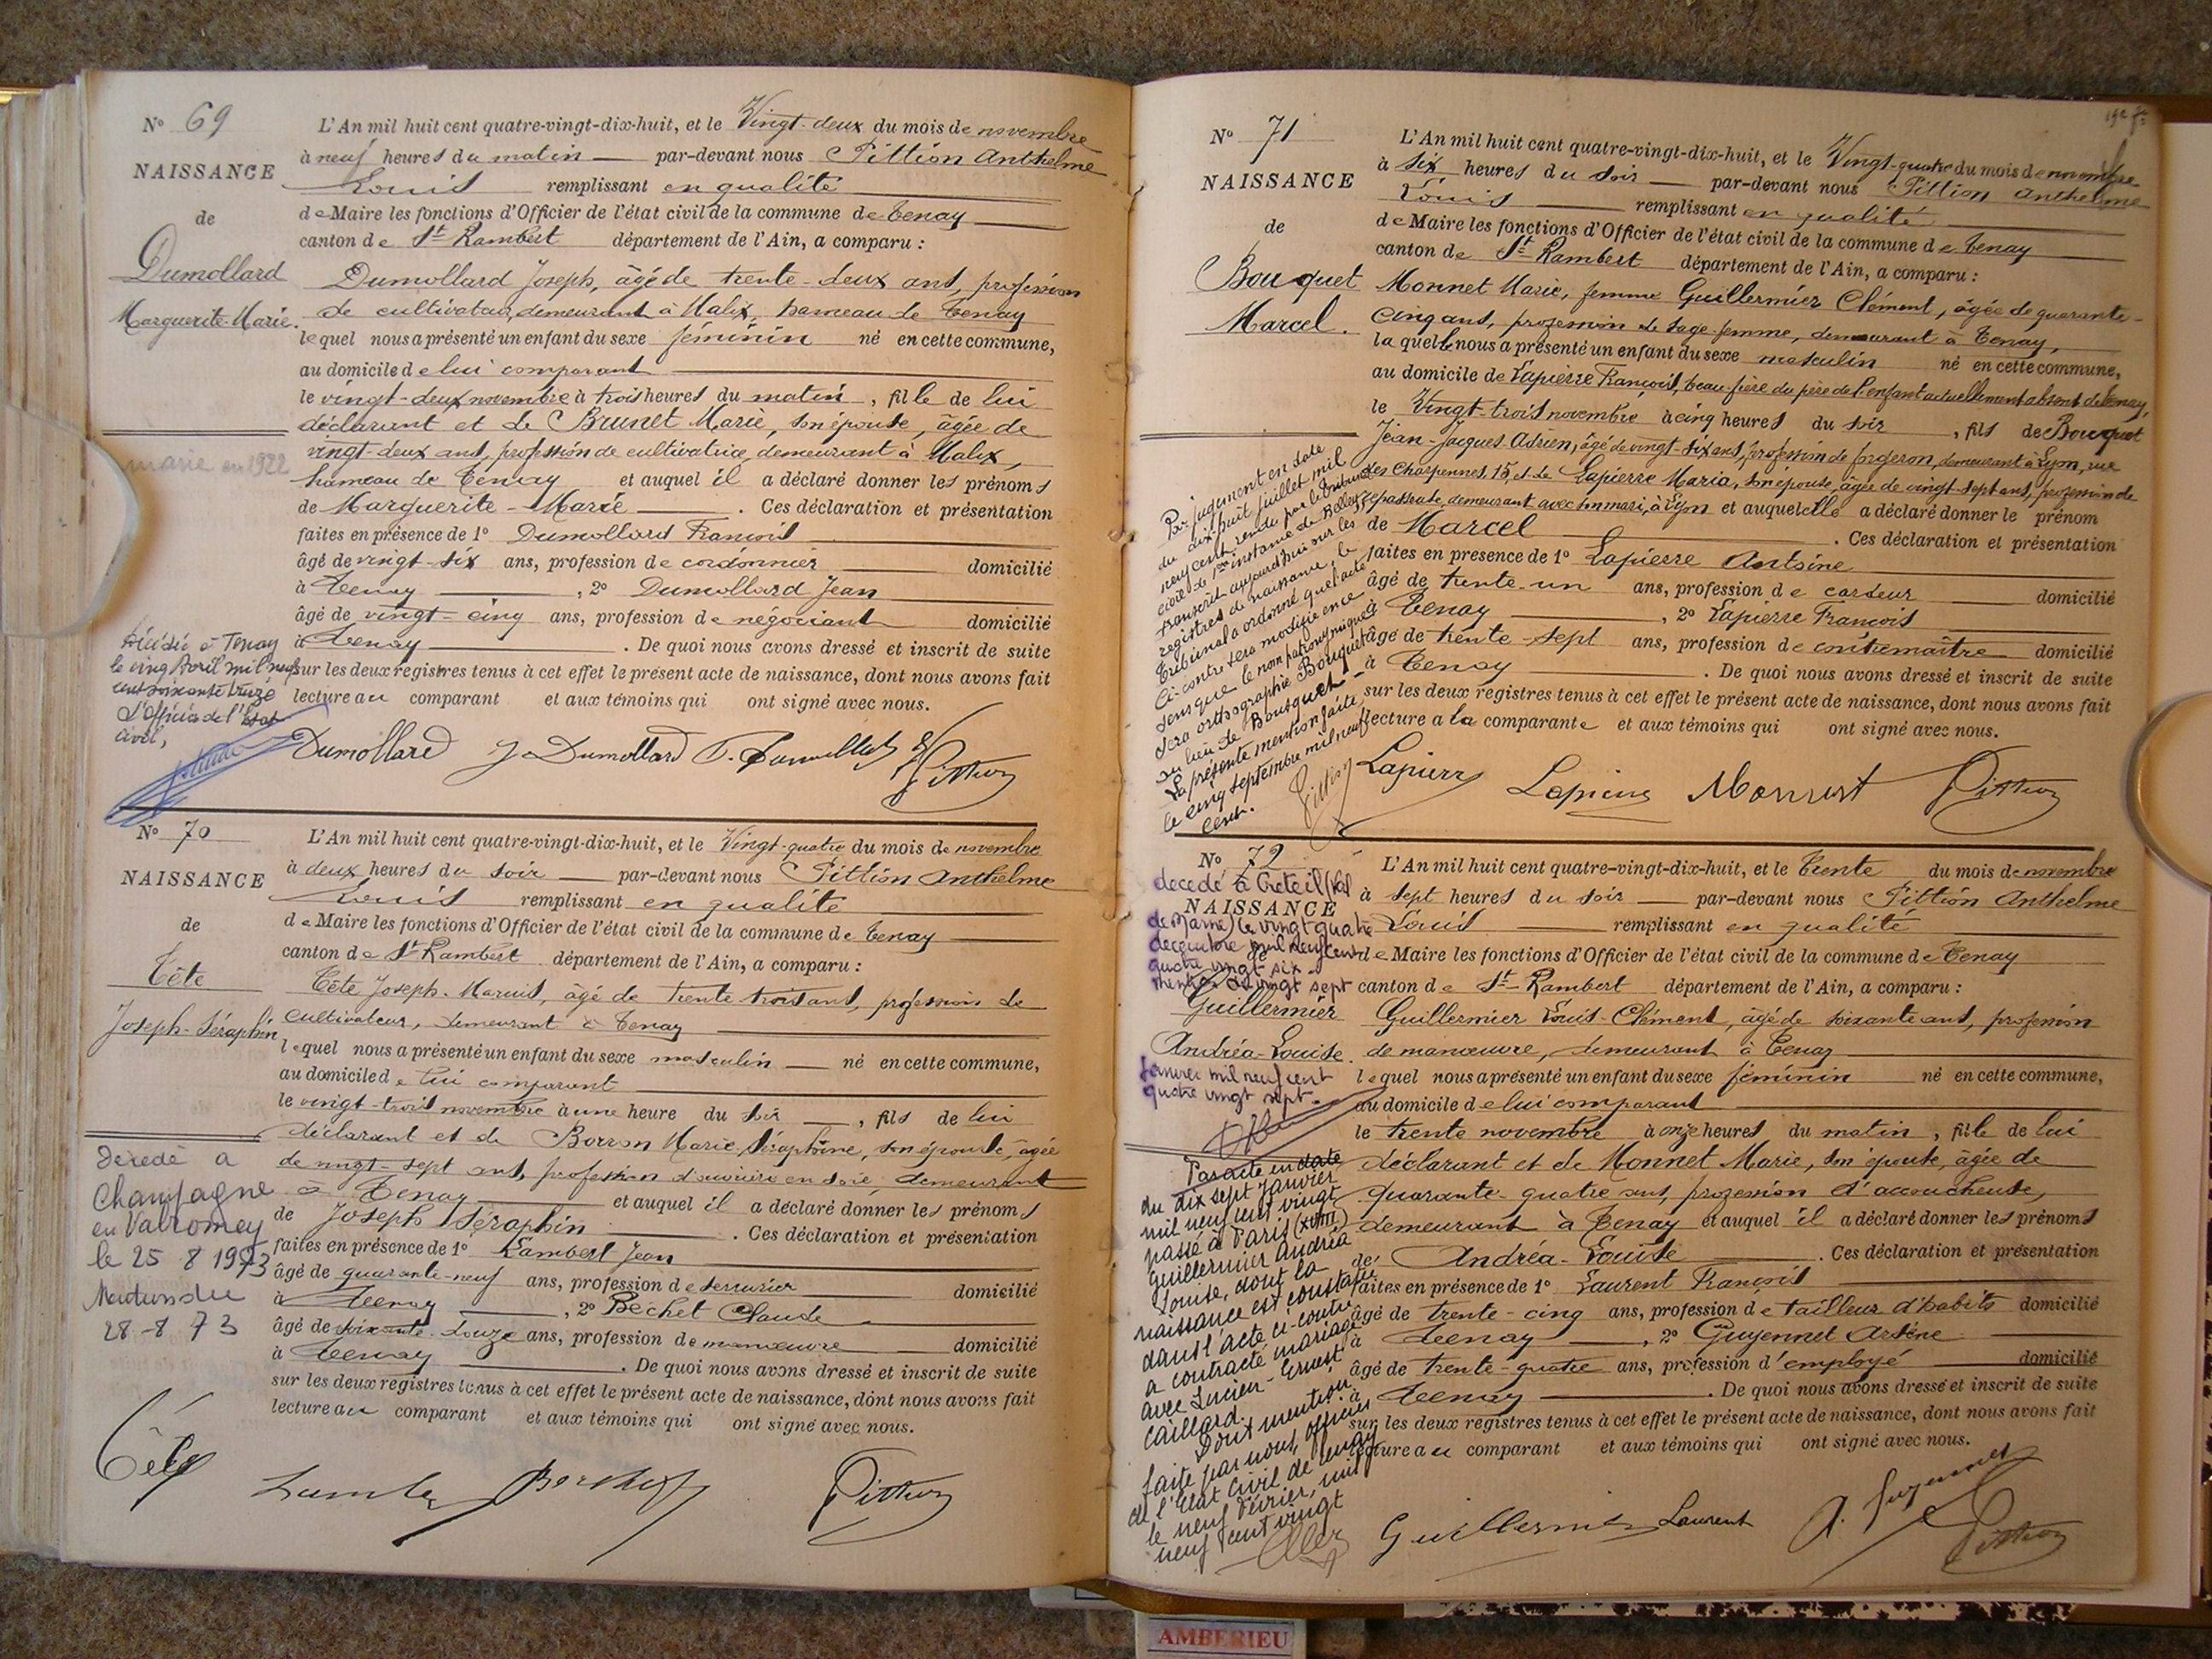 N° 69
NAISSANCE
de
Dumollard
Marguerite-Marie.
marie en 1922
Décédée à Tenay
le cinq Avril mil neuf
cent soixante treize
L'Officier de l'Etat
civil,
L'An mil huit cent quatre-vingt-dix-huit, et le Vingt-deux du mois de novembre
à neuf heures du matin par-devant nous Pittion Anthelme
Louis remplissant en qualité
de Maire les fonctions d'Officier de l'état civil de la commune de Tenay
canton de St Rambert département de l'Ain, a comparu :
Dumollard Joseph, âgé de trente-deux ans, profession
de cultivateur, demeurant à Malix, hameau de Tenay
lequel nous a présenté un enfant du sexe féminin né en cette commune,
au domicile de lui comparant
le vingt-deux novembre à trois heures du matin, fille de lui
déclarant et de Brunet Marie, son épouse, âgée de
vingt-deux ans, profession de cultivatrice, demeurant à Malix,
hameau de Tenay et auquel il a déclaré donner les prénoms
de Marguerite-Marie. Ces déclaration et présentation
faites en présence de 1° Dumollard François
âgé de vingt-six ans, profession de cordonnier domicilié
à Tenay, 2° Dumollard Jean
âgé de vingt-cinq ans, profession de négociant domicilié
à Tenay. De quoi nous avons dressé et inscrit de suite
sur les deux registres tenus à cet effet le présent acte de naissance, dont nous avons fait
lecture au comparant et aux témoins qui ont signé avec nous.
Dumollard J Dumollard F. Dumollard Pittion
N° 70
NAISSANCE
de
Tête
Joseph-Séraphin
Décédé à
Champagne
en Valromey
le 25 8 1973
Mention du
28-8 73
L'An mil huit cent quatre-vingt-dix-huit, et le Vingt-quatre du mois de novembre
à deux heures du soir par-devant nous Pittion Anthelme
Louis remplissant en qualité
de Maire les fonctions d'Officier de l'état civil de la commune de Tenay
canton de St Rambert département de l'Ain, a comparu :
Tête Joseph-Marius, âgé de trente-trois ans, profession de
cultivateur, demeurant à Tenay
lequel nous a présenté un enfant du sexe masculin né en cette commune,
au domicile de lui comparant
le vingt-trois novembre à une heure du soir, fils de lui
déclarant et de Borron Marie Séraphine, son épouse, âgée
de vingt-sept ans, profession d'ouvrière en soie, demeurant
à Tenay et auquel il a déclaré donner les prénoms
de Joseph Séraphin. Ces déclaration et présentation
faites en présence de 1° Lambert Jean
âgé de quarante-neuf ans, profession de serrurier domicilié
à Tenay, 2° Bechet Claude
âgé de soixante-douze ans, profession de manoeuvre domicilié
à Tenay. De quoi nous avons dressé et inscrit de suite
sur les deux registres tenus à cet effet le présent acte de naissance, dont nous avons fait
lecture au comparant et aux témoins qui ont signé avec nous.
Tête Pittion
N° 71
NAISSANCE
de
Bouquet
Marcel.
Par jugement en date
du dix-huit juillet mil
neuf cent, rendu par le tribunal
civil de 1re instance de Belley,
transcrit aujourd'hui sur les
registres de naissance, le
Tribunal a ordonné que l'acte
ci-contre sera modifié en ce
sens que le nom patronymique
sera orthographié Bouquet
au lieu de Bousquet.
La présente mention faite
le cinq septembre mil neuf
cent.
Pittion
L'An mil huit cent quatre-vingt-dix-huit, et le Vingt-quatre du mois de novembre
à six heures du soir par-devant nous Pittion Anthelme
Louis remplissant en qualité
de Maire les fonctions d'Officier de l'état civil de la commune de Tenay
canton de St Rambert département de l'Ain, a comparu :
Monnet Marie, femme Guillermier Clément, âgée de quarante-
cinq ans, profession de sage-femme, demeurant à Tenay,
laquelle nous a présenté un enfant du sexe masculin né en cette commune,
au domicile de Lapierre François, beau-frère du père de l'enfant actuellement absent de Tenay,
le Vingt-trois novembre à cinq heures du soir, fils de Bouquet
Jean-Jacques Adrien, âgé de vingt-six ans, profession de forgeron, demeurant à Lyon, rue
des Charpennes, 15, et de Lapierre Maria, son épouse, âgée de vingt-sept ans, profession de
repasseuse, demeurant avec son mari, à Lyon et auquel elle a déclaré donner le prénom
de Marcel. Ces déclaration et présentation
faites en présence de 1° Lapierre Antoine
âgé de trente-un ans, profession de cardeur domicilié
à Tenay, 2° Lapierre François
âgé de trente-sept ans, profession de contremaître domicilié
à Tenay. De quoi nous avons dressé et inscrit de suite
sur les deux registres tenus à cet effet le présent acte de naissance, dont nous avons fait
lecture à la comparante et aux témoins qui ont signé avec nous.
Lapierre Lapierre Monnet Pittion
N° 72
decedé à Creteil (Val
NAISSANCE
de Marne) le vingt quatre
decembre mil neuf cent
de
quatre vingt six
mention du vingt sept
Guillermier
Andréa-Louise.
janvier mil neuf cent
quatre vingt sept.
Par acte en date
du dix sept Janvier
mil neuf cent vingt
passé à Paris (XVIII)
Guillermier Andréa
Louise, dont la
naissance est constatée
dans l'acte ci-contre
a contracté mariage
avec Lucien-Ernest
Caillard.
Dont mention
faite par nous, officier
de l'Etat Civil de Tenay
le neuf Février, mil
neuf cent vingt
L'An mil huit cent quatre-vingt-dix-huit, et le Trente du mois de novembre
à sept heures du soir par-devant nous Pittion Anthelme
Louis remplissant en qualité
de Maire les fonctions d'Officier de l'état civil de la commune de Tenay
canton de St-Rambert département de l'Ain, a comparu :
Guillermier Louis-Clément, âgé de soixante ans, profession
de manoeuvre, demeurant à Tenay
lequel nous a présenté un enfant du sexe féminin né en cette commune,
au domicile de lui comparant
le trente novembre à onze heures du matin, fille de lui
déclarant et de Monnet Marie, son épouse, âgée de
quarante-quatre ans, profession d'accoucheuse,
demeurant à Tenay et auquel il a déclaré donner les prénoms
de Andréa-Louise. Ces déclaration et présentation
faites en présence de 1° Laurent François
âgé de trente-cinq ans, profession de tailleur d'habits domicilié
à Tenay, 2° Guyennet Arsène
âgé de trente-quatre ans, profession d'employé domicilié
à Tenay. De quoi nous avons dressé et inscrit de suite
sur les deux registres tenus à cet effet le présent acte de naissance, dont nous avons fait
lecture au comparant et aux témoins qui ont signé avec nous.
Guillermier Laurent A. Guyennet Pittion
AMBERIEU